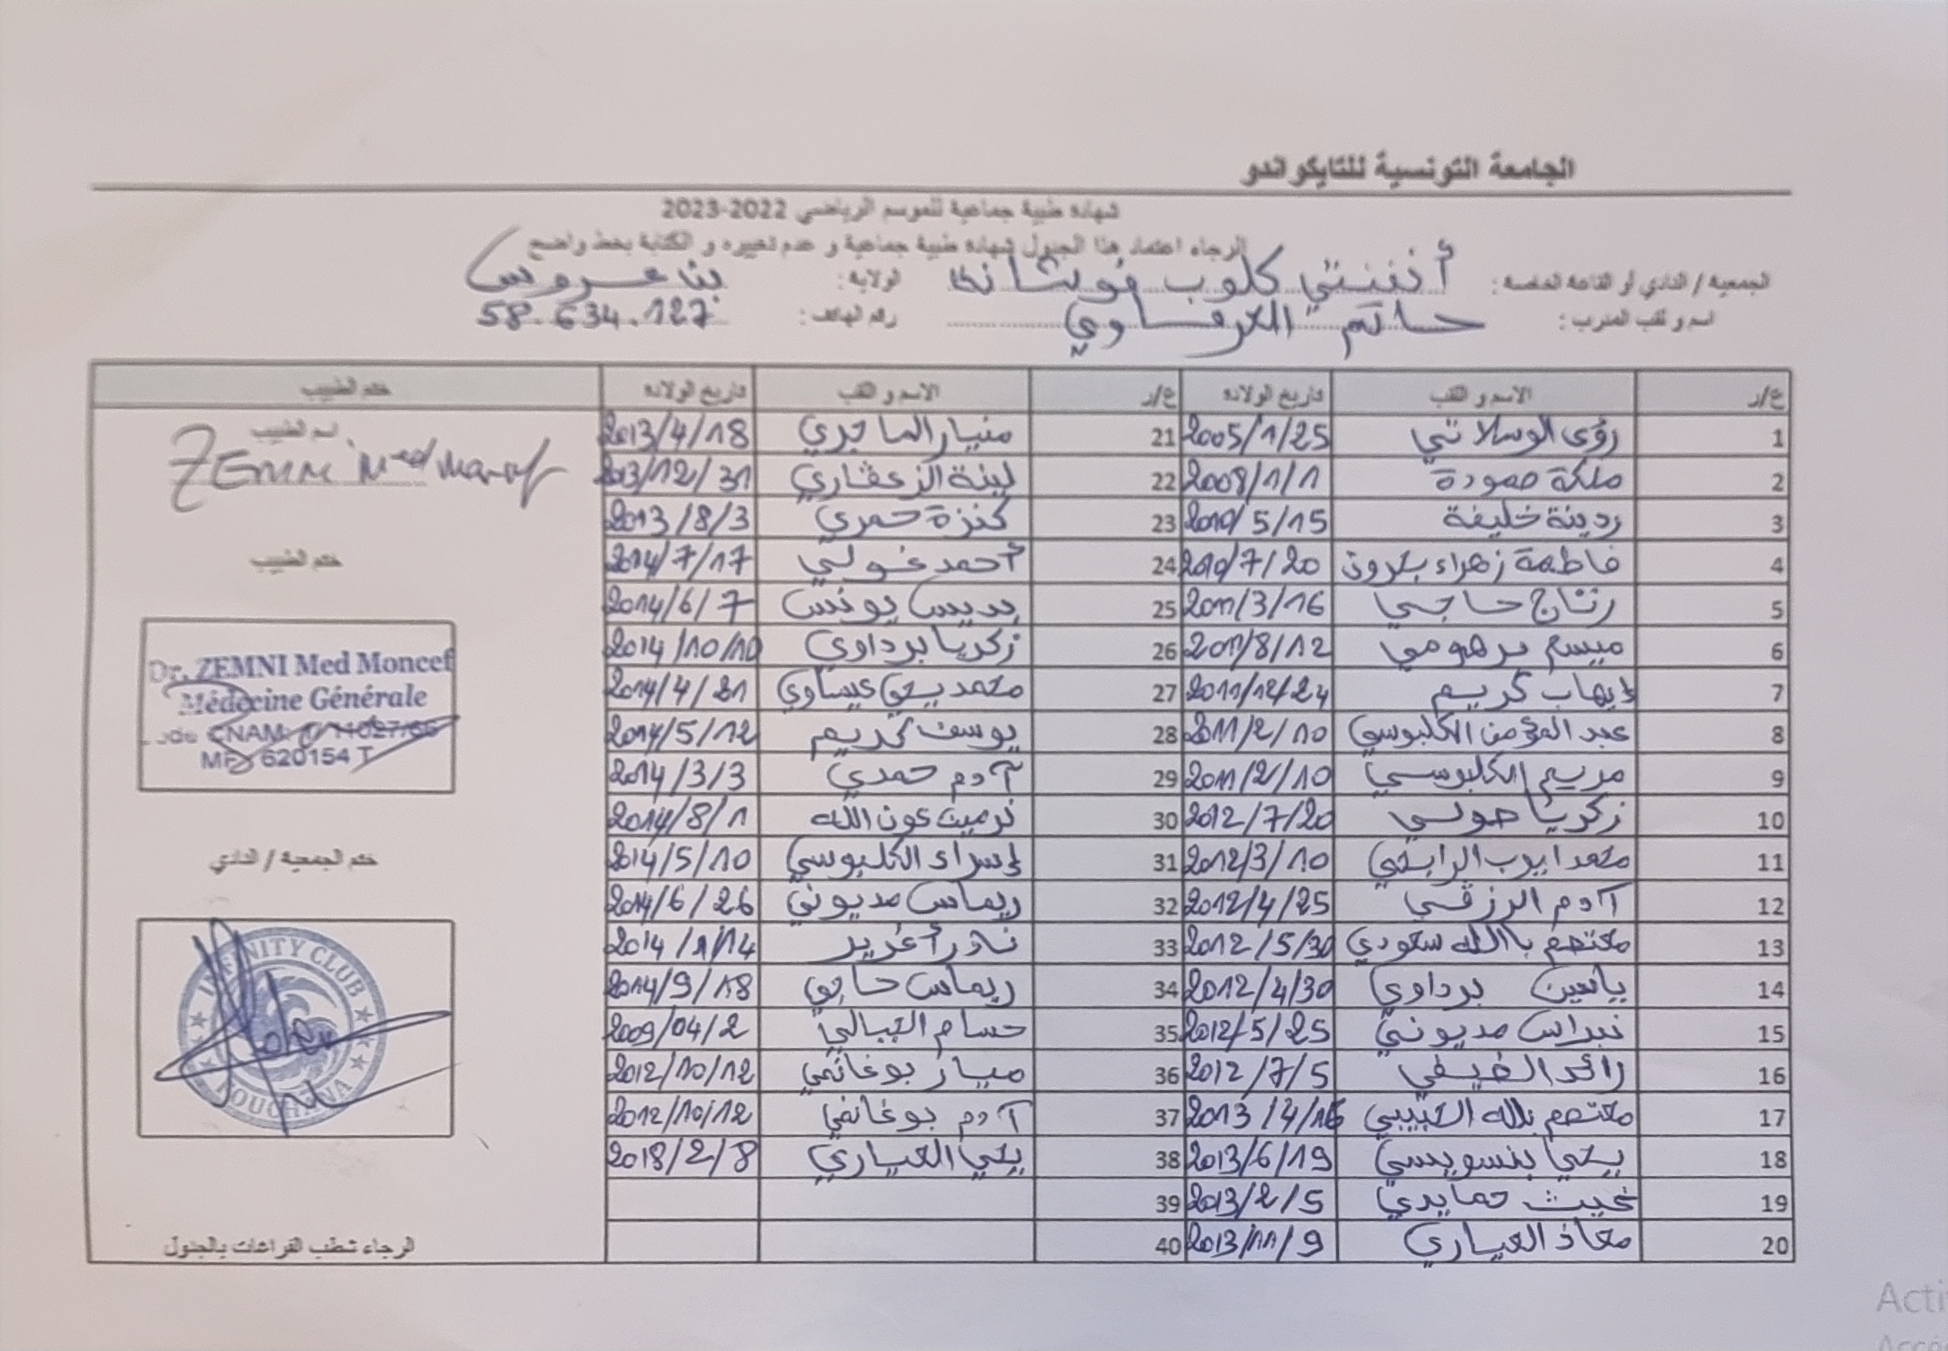 الجامعة التونسية للتايكواندو
شهادة طبية جماعية للموسم الرياضي 2022-2023
الرجاء اعتماد هذا الجدول شهادة طبية جماعية و عدم تغييره و الكتابة بخط واضح
الجمعية / النادي أو القاعة الخاصة : أنفنتي كلوب فوشانة الولاية : بنعروس
اسم و لقب المدرب : حاتم العرفاوي رقم الهاتف : 58.634.127
ع/ر الاسم و اللقب تاريخ الولادة ع/ر الاسم و اللقب تاريخ الولادة ختم الطبيب
1 رؤى الوسلاتي 2005/1/25 21 منيار الماجري 2013/4/18
2 ملكة حمودة 2008/1/1 22 لينة الزعفاري 2013/12/31
3 ردينة خليفة 2010/5/15 23 كنزة حمري 2013/8/3
4 فاطمة زهراء 2010/7/20 24 أحمد غولي 2014/7/17
5 رتاج حاجي 2011/3/16 25 بديس يونس 2014/6/7
6 ميسم برهومي 2011/8/12 26 زكريا برداوي 2014/10/10
7 إيهاب كريم 2011/12/24 27 محمد يحي عيساوي 2014/4/21
8 عبد المؤمن الكلبوسي 2011/2/10 28 يوسف كريم 2014/5/12
9 مريم الكلبوسي 2011/2/10 29 آدم حمدي 2014/3/3
10 زكريا 2012/7/20 30 نرمين عون الله 2014/8/1
11 محمد ايوب الرابحي 2012/3/10 31 إسراء الكلبوسي 2014/5/10
12 آدم الرزقي 2012/4/25 32 ريماس مديوني 2014/6/26
13 معتصم باالله سعودي 2012/5/30 33 نادر 2014/1/14
14 ياسين برداوي 2012/4/30 34 ريماس حاجي 2014/9/18
15 نبراس مديوني 2012/5/25 35 حسام الجبالي 2009/04/2
16 رائد الضيفي 2012/7/5 36 ميار بوغانمي 2012/10/12
17 معتصم بالله الحبيبي 2013/4/16 37 آدم بوغانمي 2012/10/12
18 يحي بنسويسي 2013/6/19 38 يحي العياري 2018/2/8
19 غيث حمايدي 2013/2/5 39
20 معاذ العياري 2013/11/9 40
اسم الطبيب
ZEMNI Med Moncef
ختم الطبيب
Dr. ZEMNI Med Moncef
Médecine Générale
Code CNAM:
MF: 620154 T
ختم الجمعية / النادي
INFINITY CLUB
FOUCHANA
الرجاء شطب الفراغات بالجدول
Acti